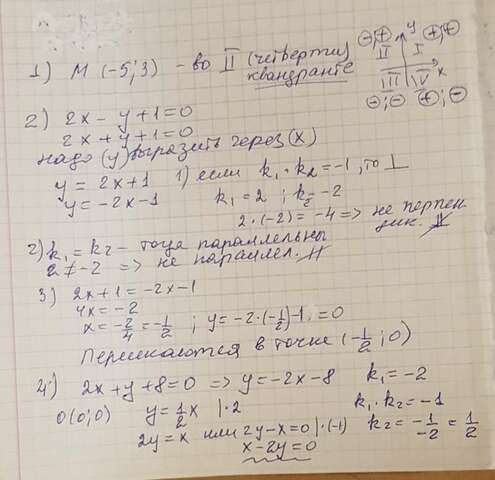 1) М (-5;3) - во II (четверти) квандранте
(-;+) II y I (+;+)
III IV x
(-;-) (+;-)
2) 2x - y + 1 = 0
2x + y + 1 = 0
надо (y) выразить через (x)
y = 2x+1 1) если k₁ · k₂ = -1, то ⊥
y = -2x-1 k₁ = 2 ; k₂ = -2
2·(-2) = -4 => не перпен
дик.
2) k₁ = k₂ - тогда параллельны
2 ≠ -2 => не параллел.
3) 2x+1 = -2x-1
4x = -2
x = -2/4 = -1/2 ; y = -2·(-1/2)-1 = 0
Пересекаются в точке (-1/2 ; 0)
4) 2x+y+8=0 => y = -2x-8 k₁ = -2
0(0;0) y = 1/2 x |·2 k₁·k₂ = -1
2y = x или 2y-x=0 |·(-1) k₂ = -1/-2 = 1/2
x-2y=0